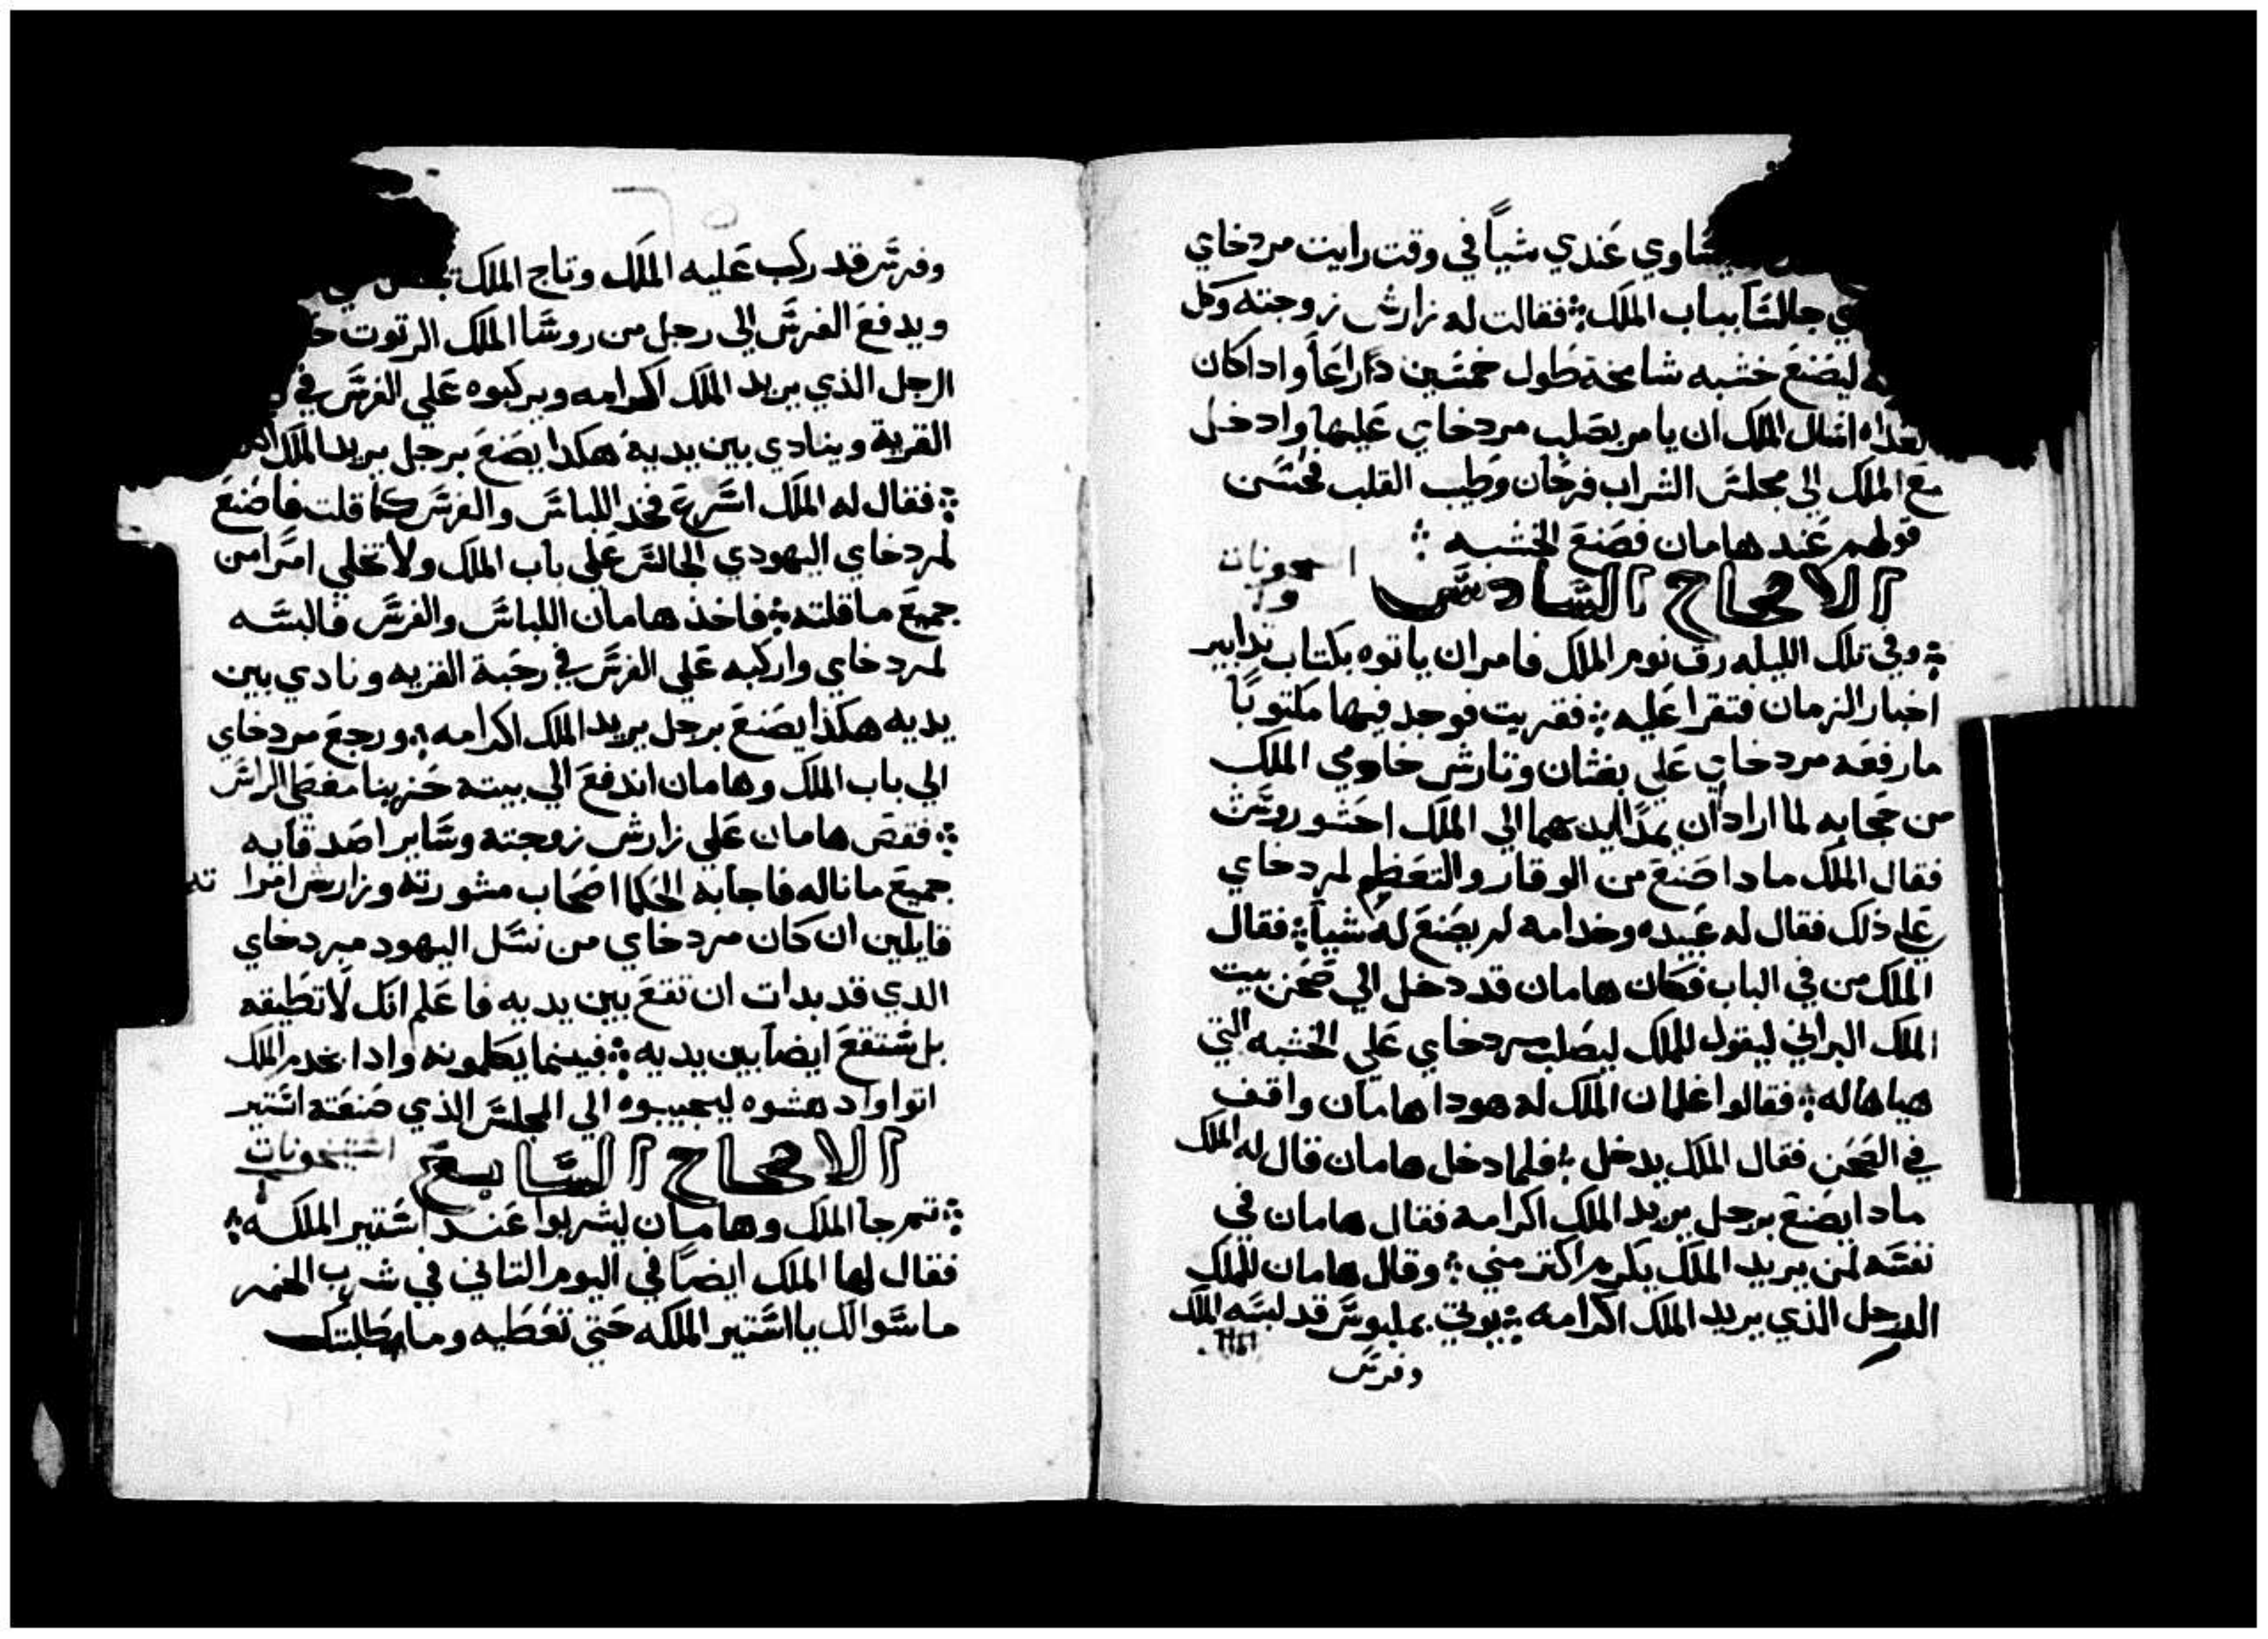 يساوي عندي شياً في وقت رايت مردخاي
جالسًا بباب الملك ܀ فقالت له زارش زوجته وكل
ليصنع خشبه شامخة طول خمسين دراعاً واداكان
اسال الملك ان يامر بصلب مردخاي عليها وادخل
مع الملك الي مجلس الشراب فرحان وطيب القلب فحسن
قولهم عند هامان فصنع الخشبه ܀
الاصحاح السادس
܀ وفي تلك الليله رق نوم الملك فامر ان ياتوه بكتاب تدابير
اخبار الزمان فتقرا عليه ܀ فقريت فوجد فيها مكتوبًا
مارفعه مردخاي علي بغثان وتارش خادمي الملك
من حجابه لما ارادان يمدا ايديهما الي الملك احشوروش
فقال الملك مادا صنع من الوقار والتعظيم لمردخاي
علي ذلك فقال له عبيده وخدامه لم يصنع له شياً ܀ فقال
الملك من في الباب فكان هامان قد دخل الي صحن بيت
الملك البراني ليقول للملك ليصلب مردخاي علي الخشبه التي
هياها له ܀ فقالوا غلمان الملك له هودا هامان واقف
في الصحن فقال الملك يدخل ܀ فلما دخل هامان قال له الملك
مادا يصنع برجل يريد الملك اكرامه فقال هامان في
نفسه لمن يريد الملك يكرم اكتر مني ܀ وقال هامان للملك
الرجل الذي يريد الملك اكرامه ܀ يوتي بملبوس قد لبسه الملك
وفرس
وفرس قد ركب عليه الملك وتاج الملك
ويدفع الفرس الي رجل من روسا الملك الرتوت
الرجل الذي يريد الملك اكرامه ويركبوه علي الفرس في
القرية وينادي بين يدية هكدا يصنع برجل يريد الملك
܀ فقال له الملك اسرع فخد اللباس والفرس كما قلت فاصنع
لمردخاي اليهودي الجالس علي باب الملك ولا تخلي امرًا من
جميع ماقلته ܀ فاخذ هامان اللباس والفرس فالبسه
لمردخاي واركبه علي الفرس في رحبة القريه ونادي بين
يديه هكذا يصنع برجل يريد الملك اكرامه ܀ ورجع مردخاي
الي باب الملك وهامان اندفع الي بيته حزينا مغطي الراس
܀ فقص هامان علي زارش زوجته وساير اصدقايه
جميع ماناله فاجابه الحكما اصحاب مشورته وزارش امراته
قايلين ان كان مردخاي من نسل اليهود مردخاي
الدي قد بدات ان تقع بين يديه فاعلم انك لا تطيقه
بل ستقع ايضاً بين يديه ܀ فبينما يكلمونه وادا بخدم الملك
اتوا وادهشوه ليجيبوه الي المجلس الذي صنعته استير
الاصحاح السابع
܀ تم جا الملك وهامان ليشربوا عند استير الملكه ܀
فقال لها الملك ايضاً في اليوم التاني في شرب الخمر
ماسوالك يااستير الملكه حتي تعطيه وما طلبتك